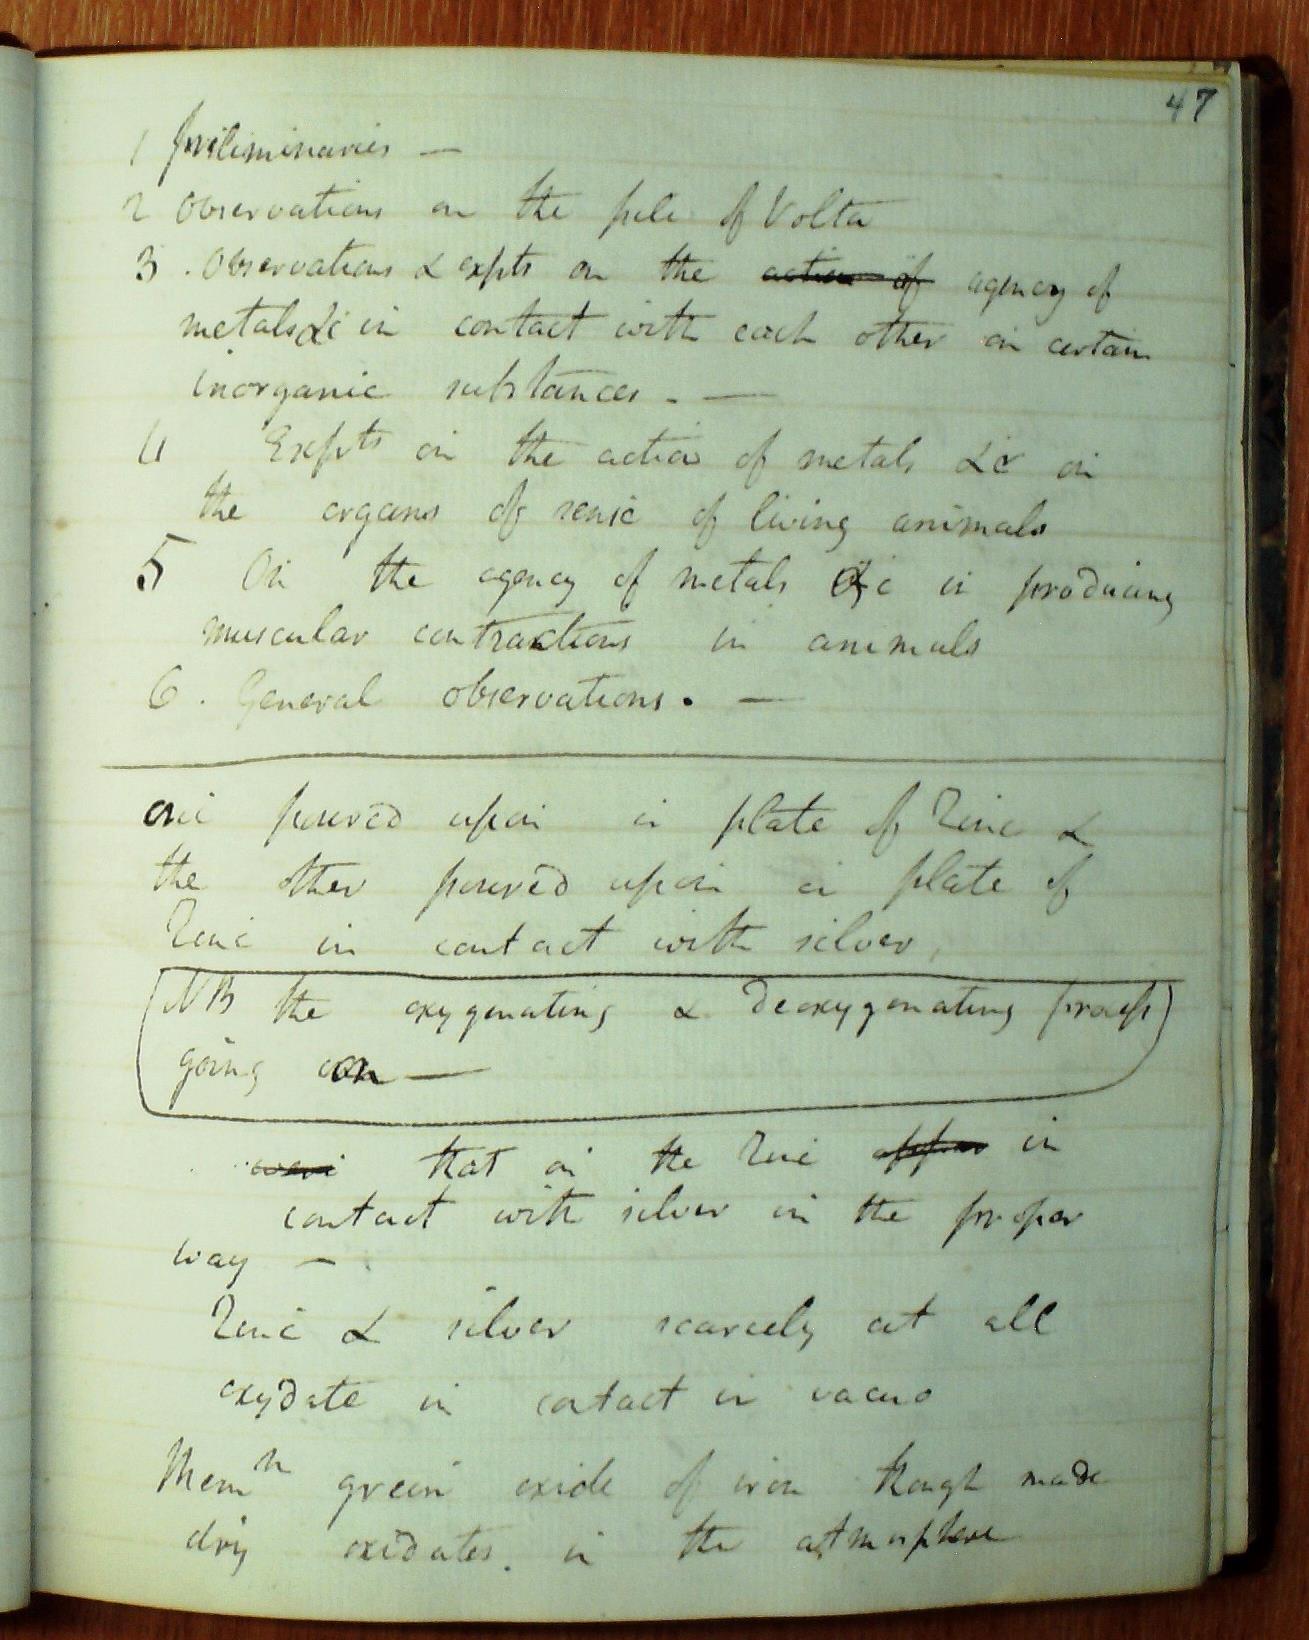 47
1 Preliminaries —
2 Observations on the pile of Volta
3 . Observations & expts on the action of agency of
metals &c in contact with each other on certain
inorganic substances . —
4 Expts on the action of metals &c on
the organs of sense of living animals
5 On the agency of metals &c in producing
muscular contractions in animals
6 . General observations . —
one poured upon a plate of Zinc &
the other poured upon a plate of
Zinc in contact with silver,
(NB the oxygenating & deoxygenating process)
going on —
that on the Zinc in
contact with silver in the proper
way — .
Zinc & silver scarcely at all
oxydate in contact in vacuo
Mem green oxide of iron though made
dry oxidates . in the atmosphere